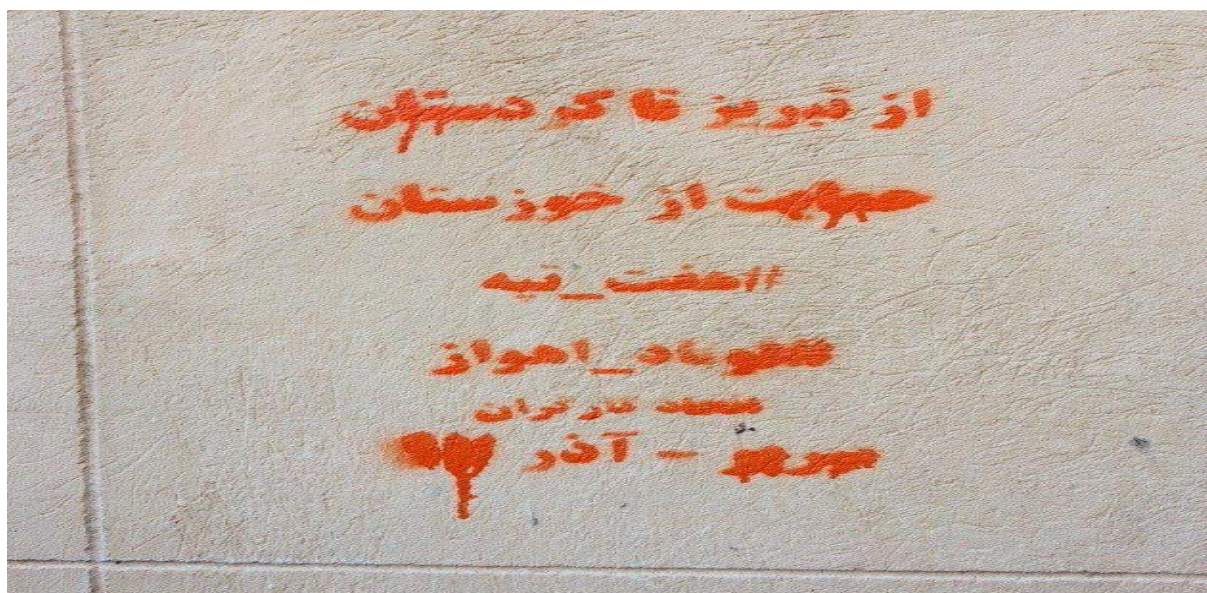 از تبریز تا کردستان
حمایت از خوزستان
#هفت_تپه
#فولاد_اهواز
کارگران
آذر ۹۷